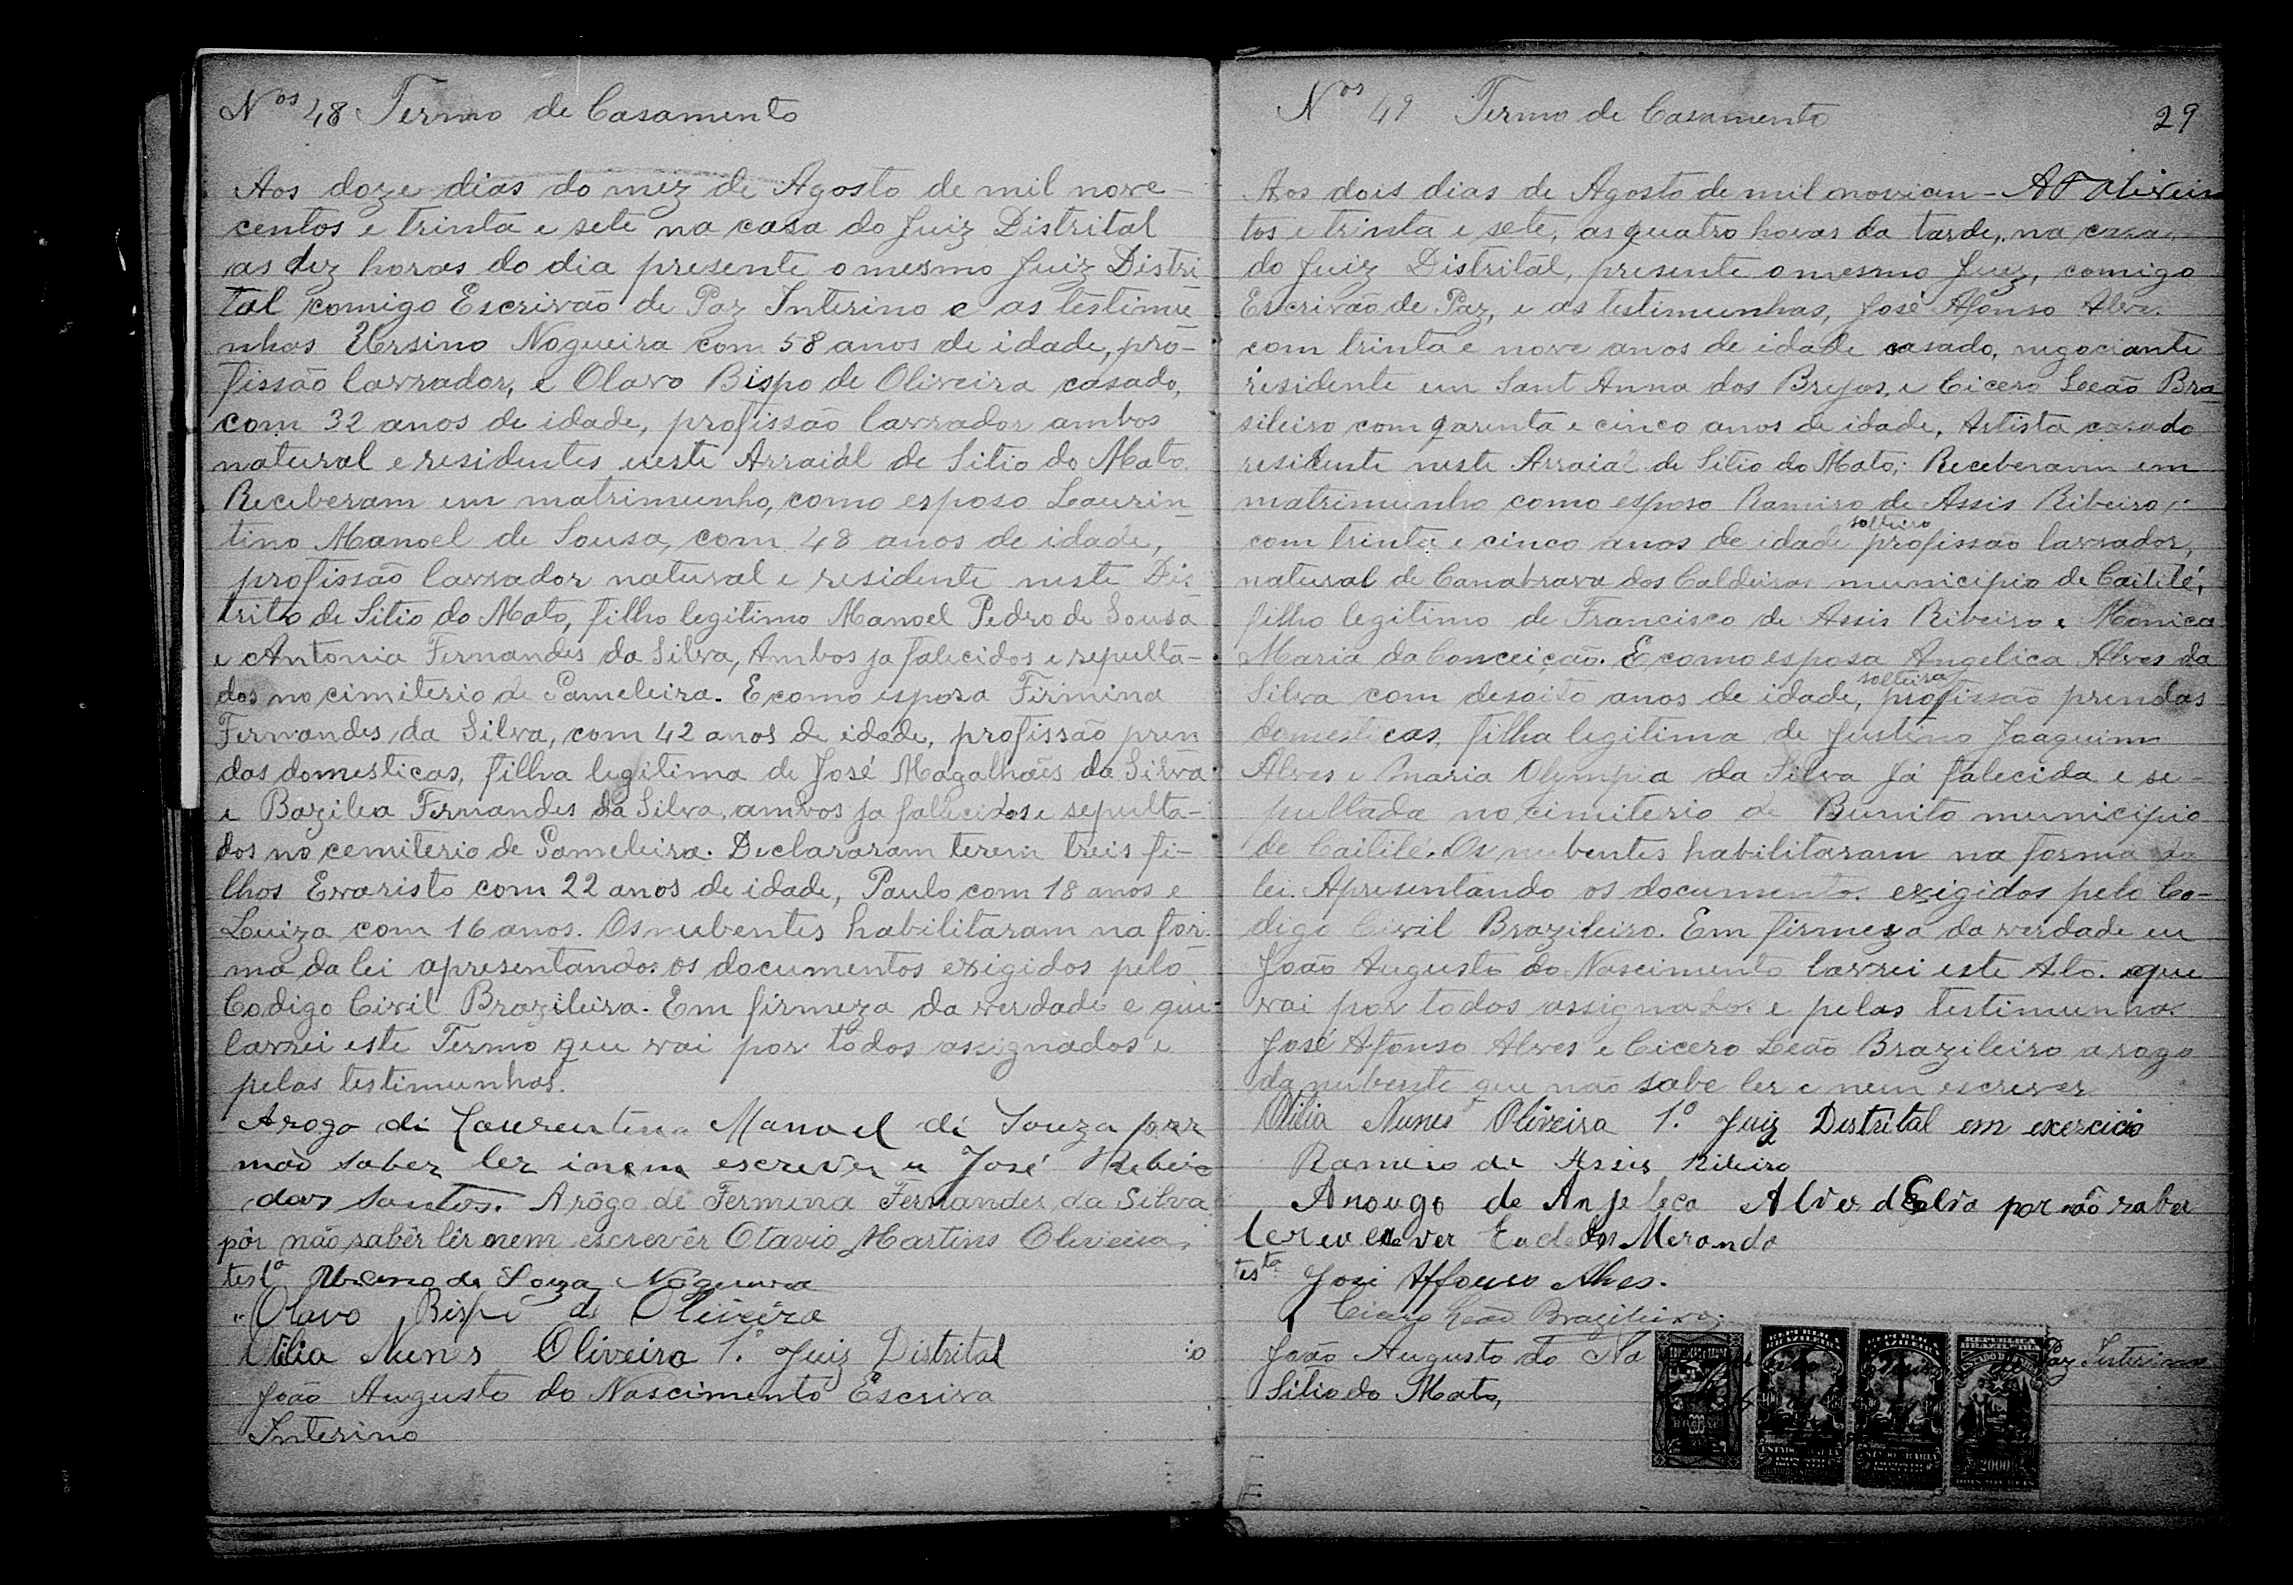 Nos 48 Termo de Casamento
Aos doze dias do mez de Agosto de mil nove-
centos e trinta e sete na casa do Juiz Distrital
as dez horas do dia presente o mesmo Juiz Distri
tal comigo Escrivão de Paz Interino e as testimu
nhas Ursino Nogueira com 58 anos de idade, pro-
fissão lavrador, e Olavo Bispo de Oliveira casado,
com 32 anos de idade, profissão lavrador ambos
natural e residentes neste Arraial de Sitio do Mato.
Receberam em matrimunho, como esposo Laurin
tino Manoel de Sousa, com 48 anos de idade,
profissão lavrador natural e residente neste Dis
trito de Sitio do Mato, filho legitimo Manoel Pedro de Sousa
e Antonia Fernandes da Silva, Ambos ja falecidos e sepulta-
dos no cimiterio de Gameleira. E como esposa Firmina
Fernandes da Silva, com 42 anos de idade, profissão pren
das domesticas, filha legitima de José Magalhães da Silva
e Bazilia Fernandes da Silva, ambos ja fallecidos e sepulta-
dos no cemiterio de Gameleira. Declararam terem treis fi-
lhos Evaristo com 22 anos de idade, Paulo com 18 anos e
Luiza com 16 anos. Os nubentes habilitaram na for
ma da lei apresentandos os documentos exigidos pelo
Codigo Civil Brazileiro. Em firmeza da verdade e que
lavrei este Termo que vai por todos assignados e
pelas testimunhas.
Arogo di Laurentino Manoel di Souza porr
não saber ler inem escrever u José Ribeiro
dos Santos. Arôgo dê Fermina Fernandes da Silva
pôr não sabêr lêr nem escrevêr Otavio Martins Oliveira,
testa de Souza Nogueira
" Olavo Bispo de Oliveira
Otilia Nunes Oliveira 1.º Juiz Distrital
João Augusto do Nascimento Escriva
Interino
Nos 49 Termo de Casamento 29
Aos dois dias de Agosto de mil novicen- Oliveira
tos e trinta e sete, as quatro horas da tarde, na casa
do Juiz Distrital, presente o mesmo Juiz, comigo
Escrivão de Paz, e as testimunhas, José Afonso Alves
com trinta e nove anos de idade casado, negociante
residente em Sant Anna dos Brejos, e Cicero Leão Bra
sileiro com qarenta e cinco anos de idade, Artista casado
residente neste Arraial de Sitio do Mato; Receberam em
matrimunho como esposo Ramiro de Assis Ribeiro,
solteiro
com trinta e cinco anos de idade profissão lavrador,
natural de Canabrava dos Caldeiras municipio de Caitité,
filho legitimo de Francisco de Assis Ribeiro e Monica
Maria da Conceição. E como esposa Angelica Alves da
solteira
Silva com desoito anos de idade, profissão prendas
domesticas, filha legitima de Justino Joaquim
Alves e Maria Olympia da Silva Já falecida e se-
pultada no cimiterio de Bunito municipio
de Caitité. Os nubentes habilitaram na forma da
lei. Apresentando os documentos exigidos pelo Co-
digo Civil Brazileiro. Em firmeza da verdade eu
João Augusto do Nascimento lavrei este Ato. que
vai por todos assignados e pelas testimunhas
José Afonso Alves e Cicero Leão Brazileiro a rogo
da nubente que não sabe ler e nem escrever
Otilia Nunes Oliveira 1.º Juiz Distrital em exercicio
Ramiro de Assis Ribeiro
Anougo de Anjeleca Alves dSelva por não saber
Merando
testa José Affonso Alves.
Cicero Leão Brazileiro,
João Augusto do Na Paz Interino
Sitio do Mato,
2000